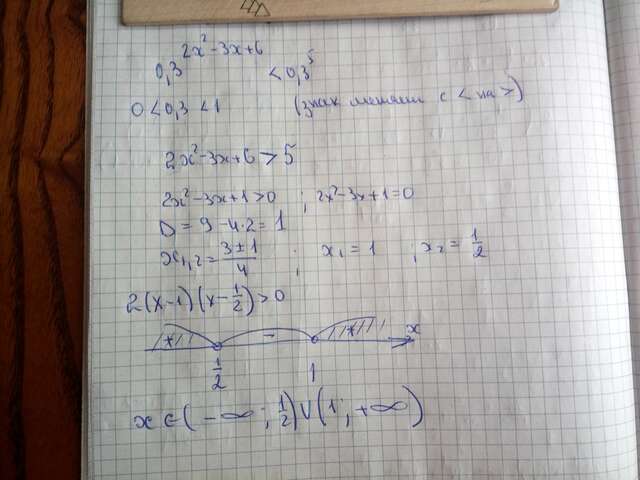 0,3^(2x²-3x+6) < 0,3⁵
0 < 0,3 < 1 (знак меняем с < на >)
2x²-3x+6 > 5
2x²-3x+1 > 0 ; 2x²-3x+1 = 0
D = 9 - 4·2 = 1
x₁,₂ = (3±1)/4 ; x₁ = 1 ; x₂ = 1/2
2(x-1)(x-1/2) > 0
+ - + x
1/2 1
x ∈ (-∞; 1/2) ∪ (1; +∞)